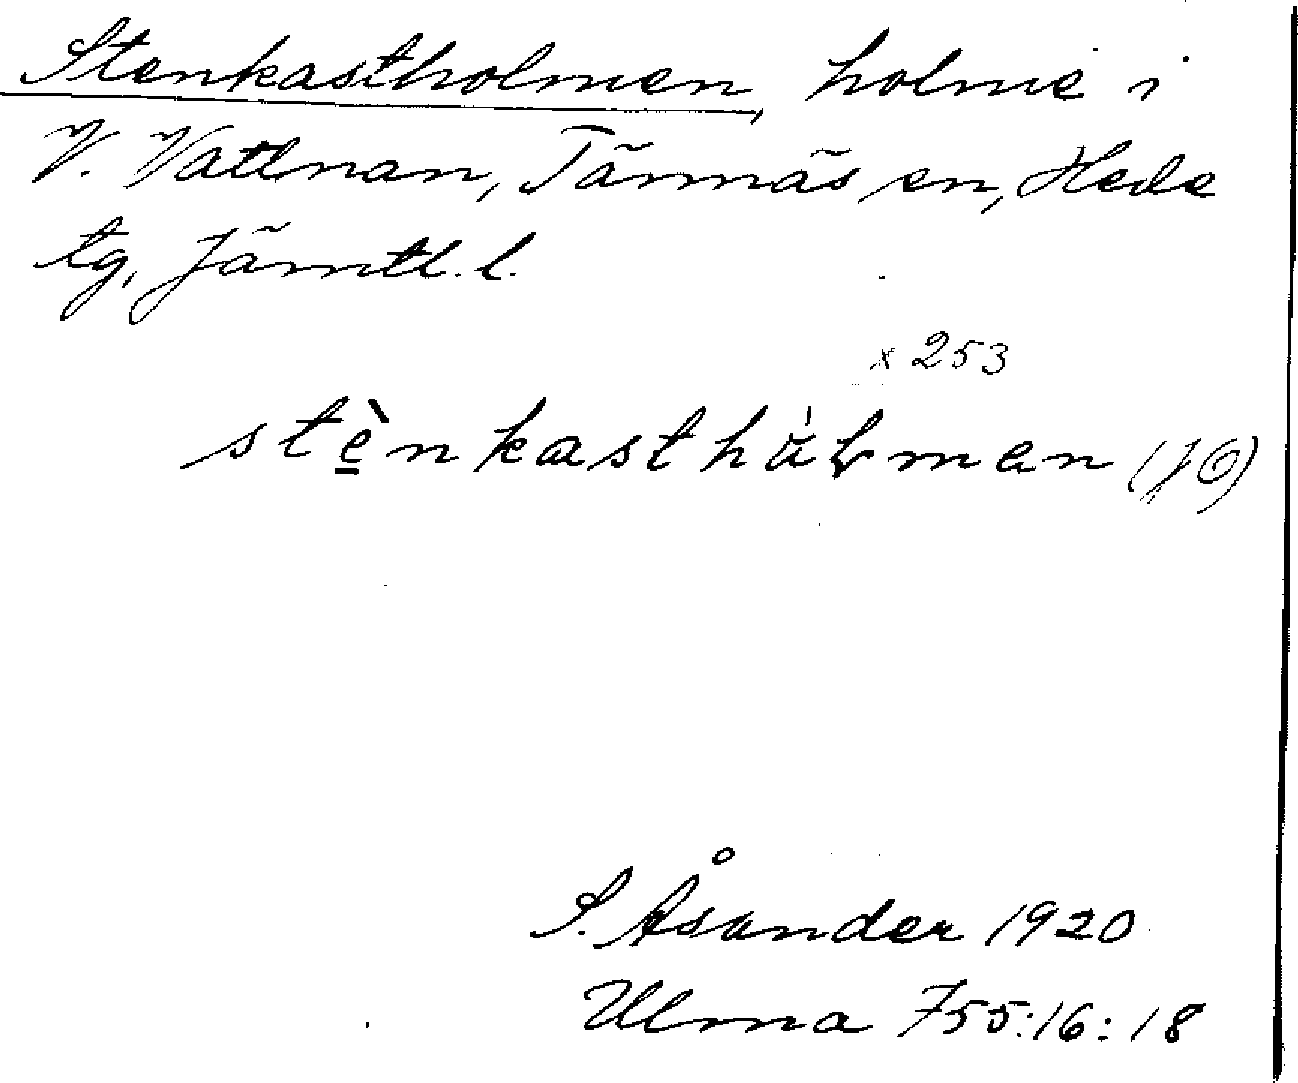 Stenkastholmen, holme i
V. Vattnan, Tännäs sn, Hede
tg, Jämtl. l.
x 253
stè̱nkasthàɫmen (JO)
S. Åsander 1920
Ulma 755:16:18